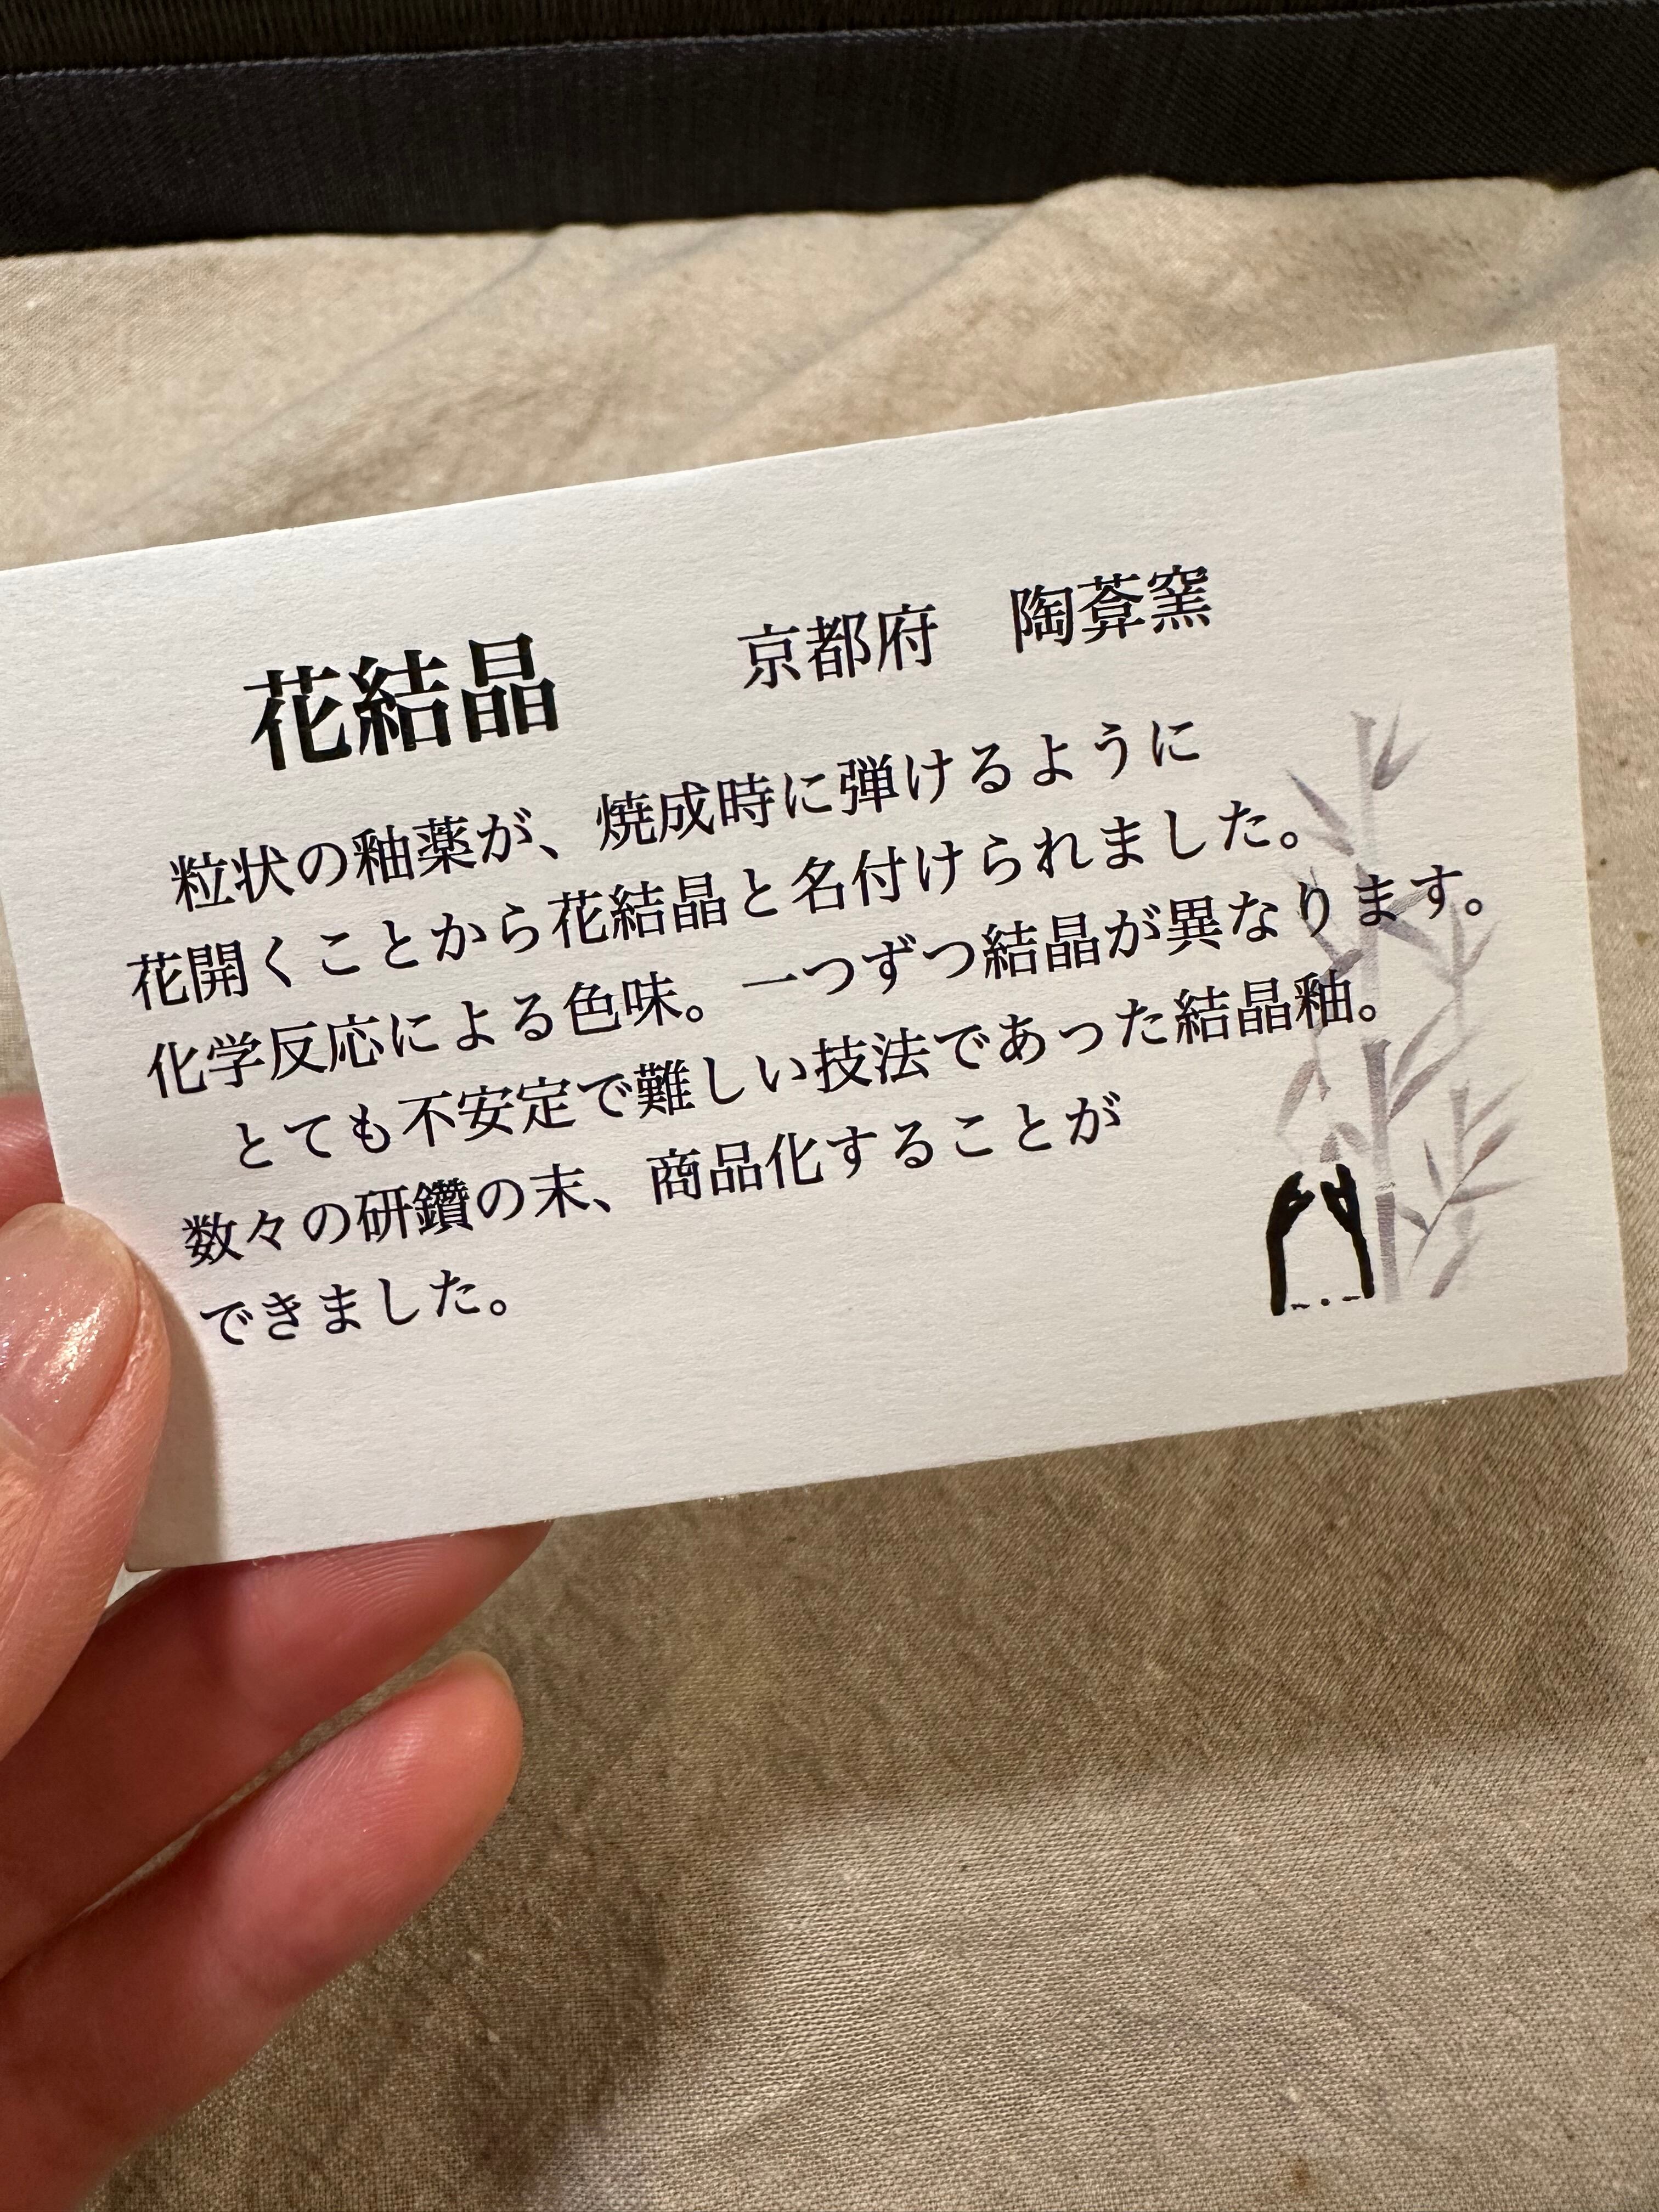 花結晶　京都府　陶葊窯
粒状の釉薬が、焼成時に弾けるように
花開くことから花結晶と名付けられました。
化学反応による色味。一つずつ結晶が異なります。
とても不安定で難しい技法であった結晶釉。
数々の研鑽の末、商品化することが
できました。